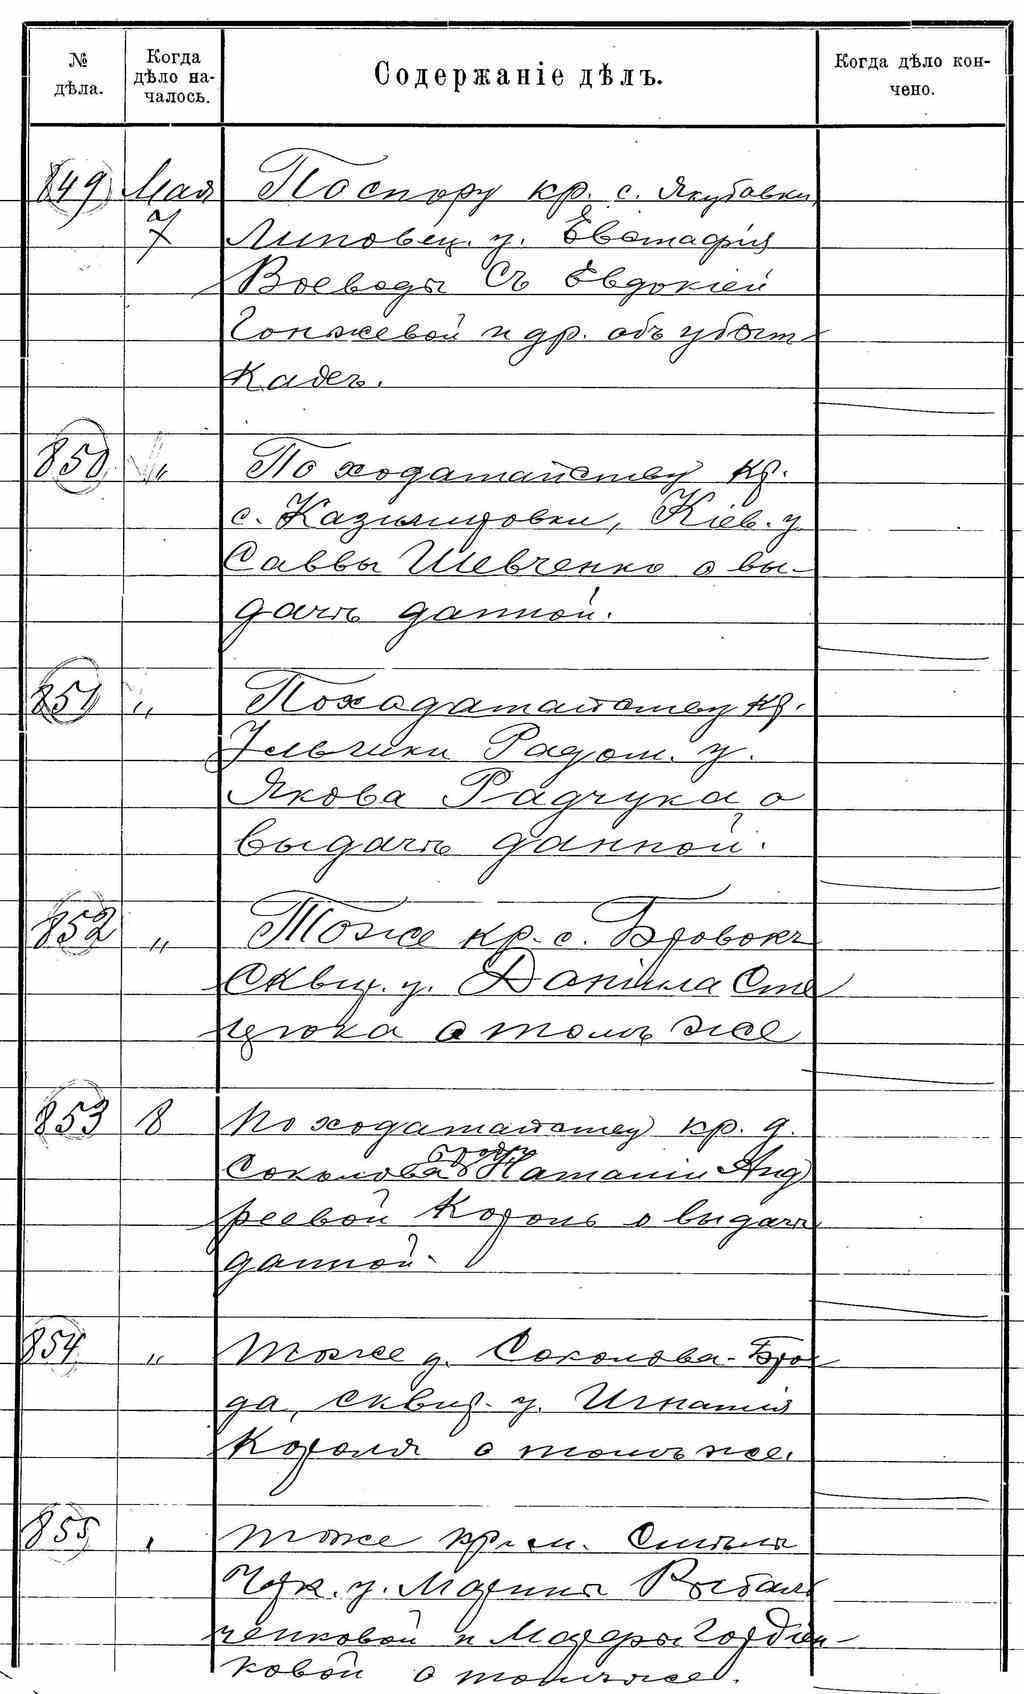 № дѣла.
Когда дѣло началось.
Содержаніе дѣлъ.
Когда дѣло кончено.
849 Мая 7 По спору кр. с. Якубовки,
Липовец. у. Евстафія
Воеводы Съ Евдокіей
Гонжевой и др. объ убыт-
кахъ.
850 " По ходатайству кр.
с. Казимировки, Кіев. у
Саввы Шевченко о вы-
дачѣ данной.
851 " По ходатайству кр.
Ульчики Радом. у.
Якова Радчука о
выдачѣ данной.
852 " Тоже кр. с. Бровокъ
Сквир. у. Даніила Сте
цюка о томъ же
853 8 По ходатайству кр. д.
Соколова Броду Наталіи Анд
реевой Король о выдачѣ
данной.
854 " Тоже д. Соколова-Бро-
да, сквир. у. Игнатія
Короля о томъ же.
855 " тоже кр. м. Смѣлы
Черк. у. Марины Рыбаль
ченковой и Мотри Гордіен-
ковой о томъ же.